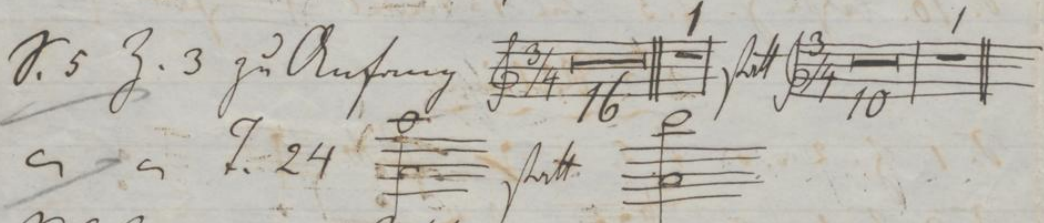 S. 5 Z. 3 zu Anfang 3/4 16 1 statt 3/4 10 1
" " T. 24 statt